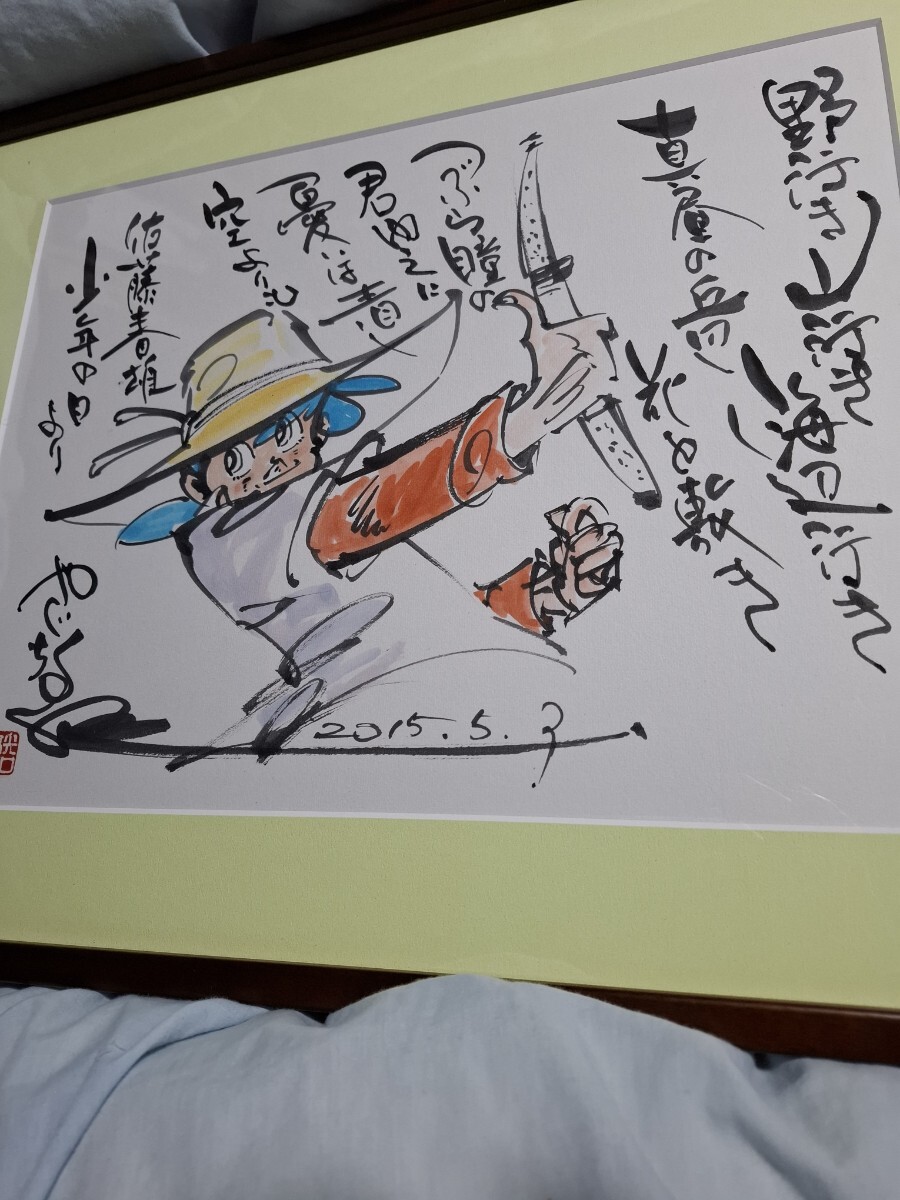 野行き山行き海辺行き
真昼の丘べ花を敷き
つぶら瞳の
君ゆゑに
憂いは青し
空よりも
佐藤春雄
少年の日
より
2015.5.3